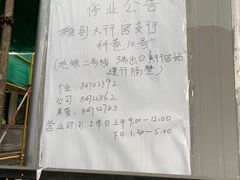 停业公告
搬到大行宫支行
科巷10号
(地铁二号线 3号出口
进行隔壁)
个金: 84702392
公司: 84722862
营业时间: 上午9.00-12.00
下午1.30-5.00